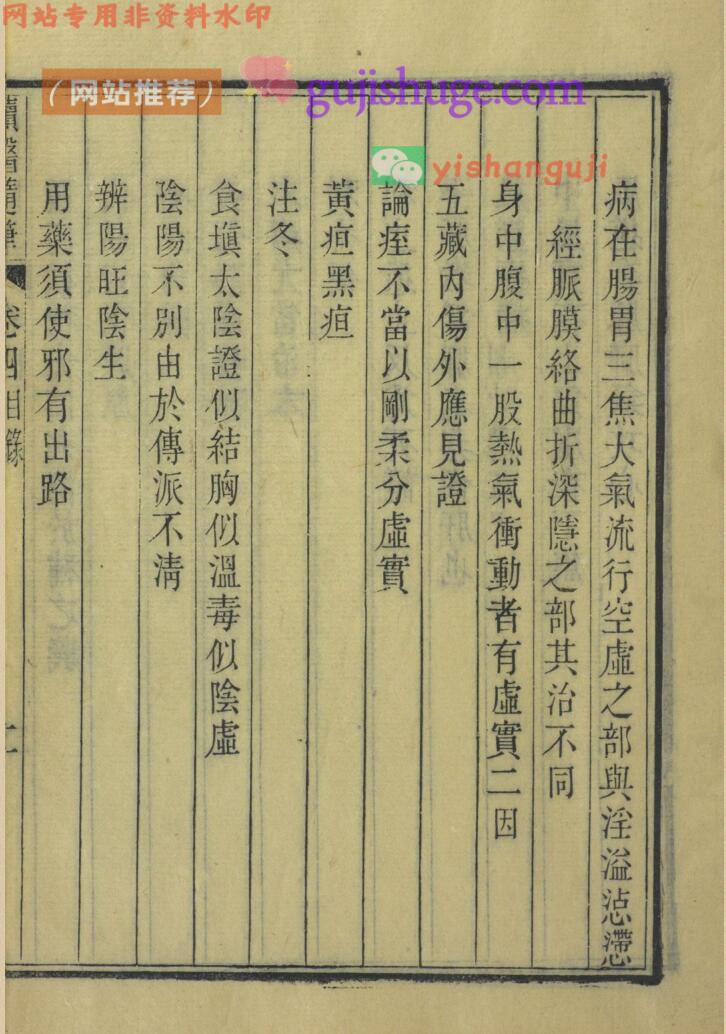 网站专用非资料水印
（网站推荐）
gujishuge.com
yishanguji
病在腸胃三焦大氣流行空虛之部與淫溢惉懘
經脈膜絡曲折深隱之部其治不同
身中腹中一股熱氣衝動者有虛實二因
五藏內傷外應見證
論痓不當以剛柔分虛實
黃疸黑疸
注冬
食塡太陰證似結胸似溫毒似陰虛
陰陽不別由於傳派不淸
辨陽旺陰生
用藥須使邪有出路
讀醫隨筆 卷四目錄 二